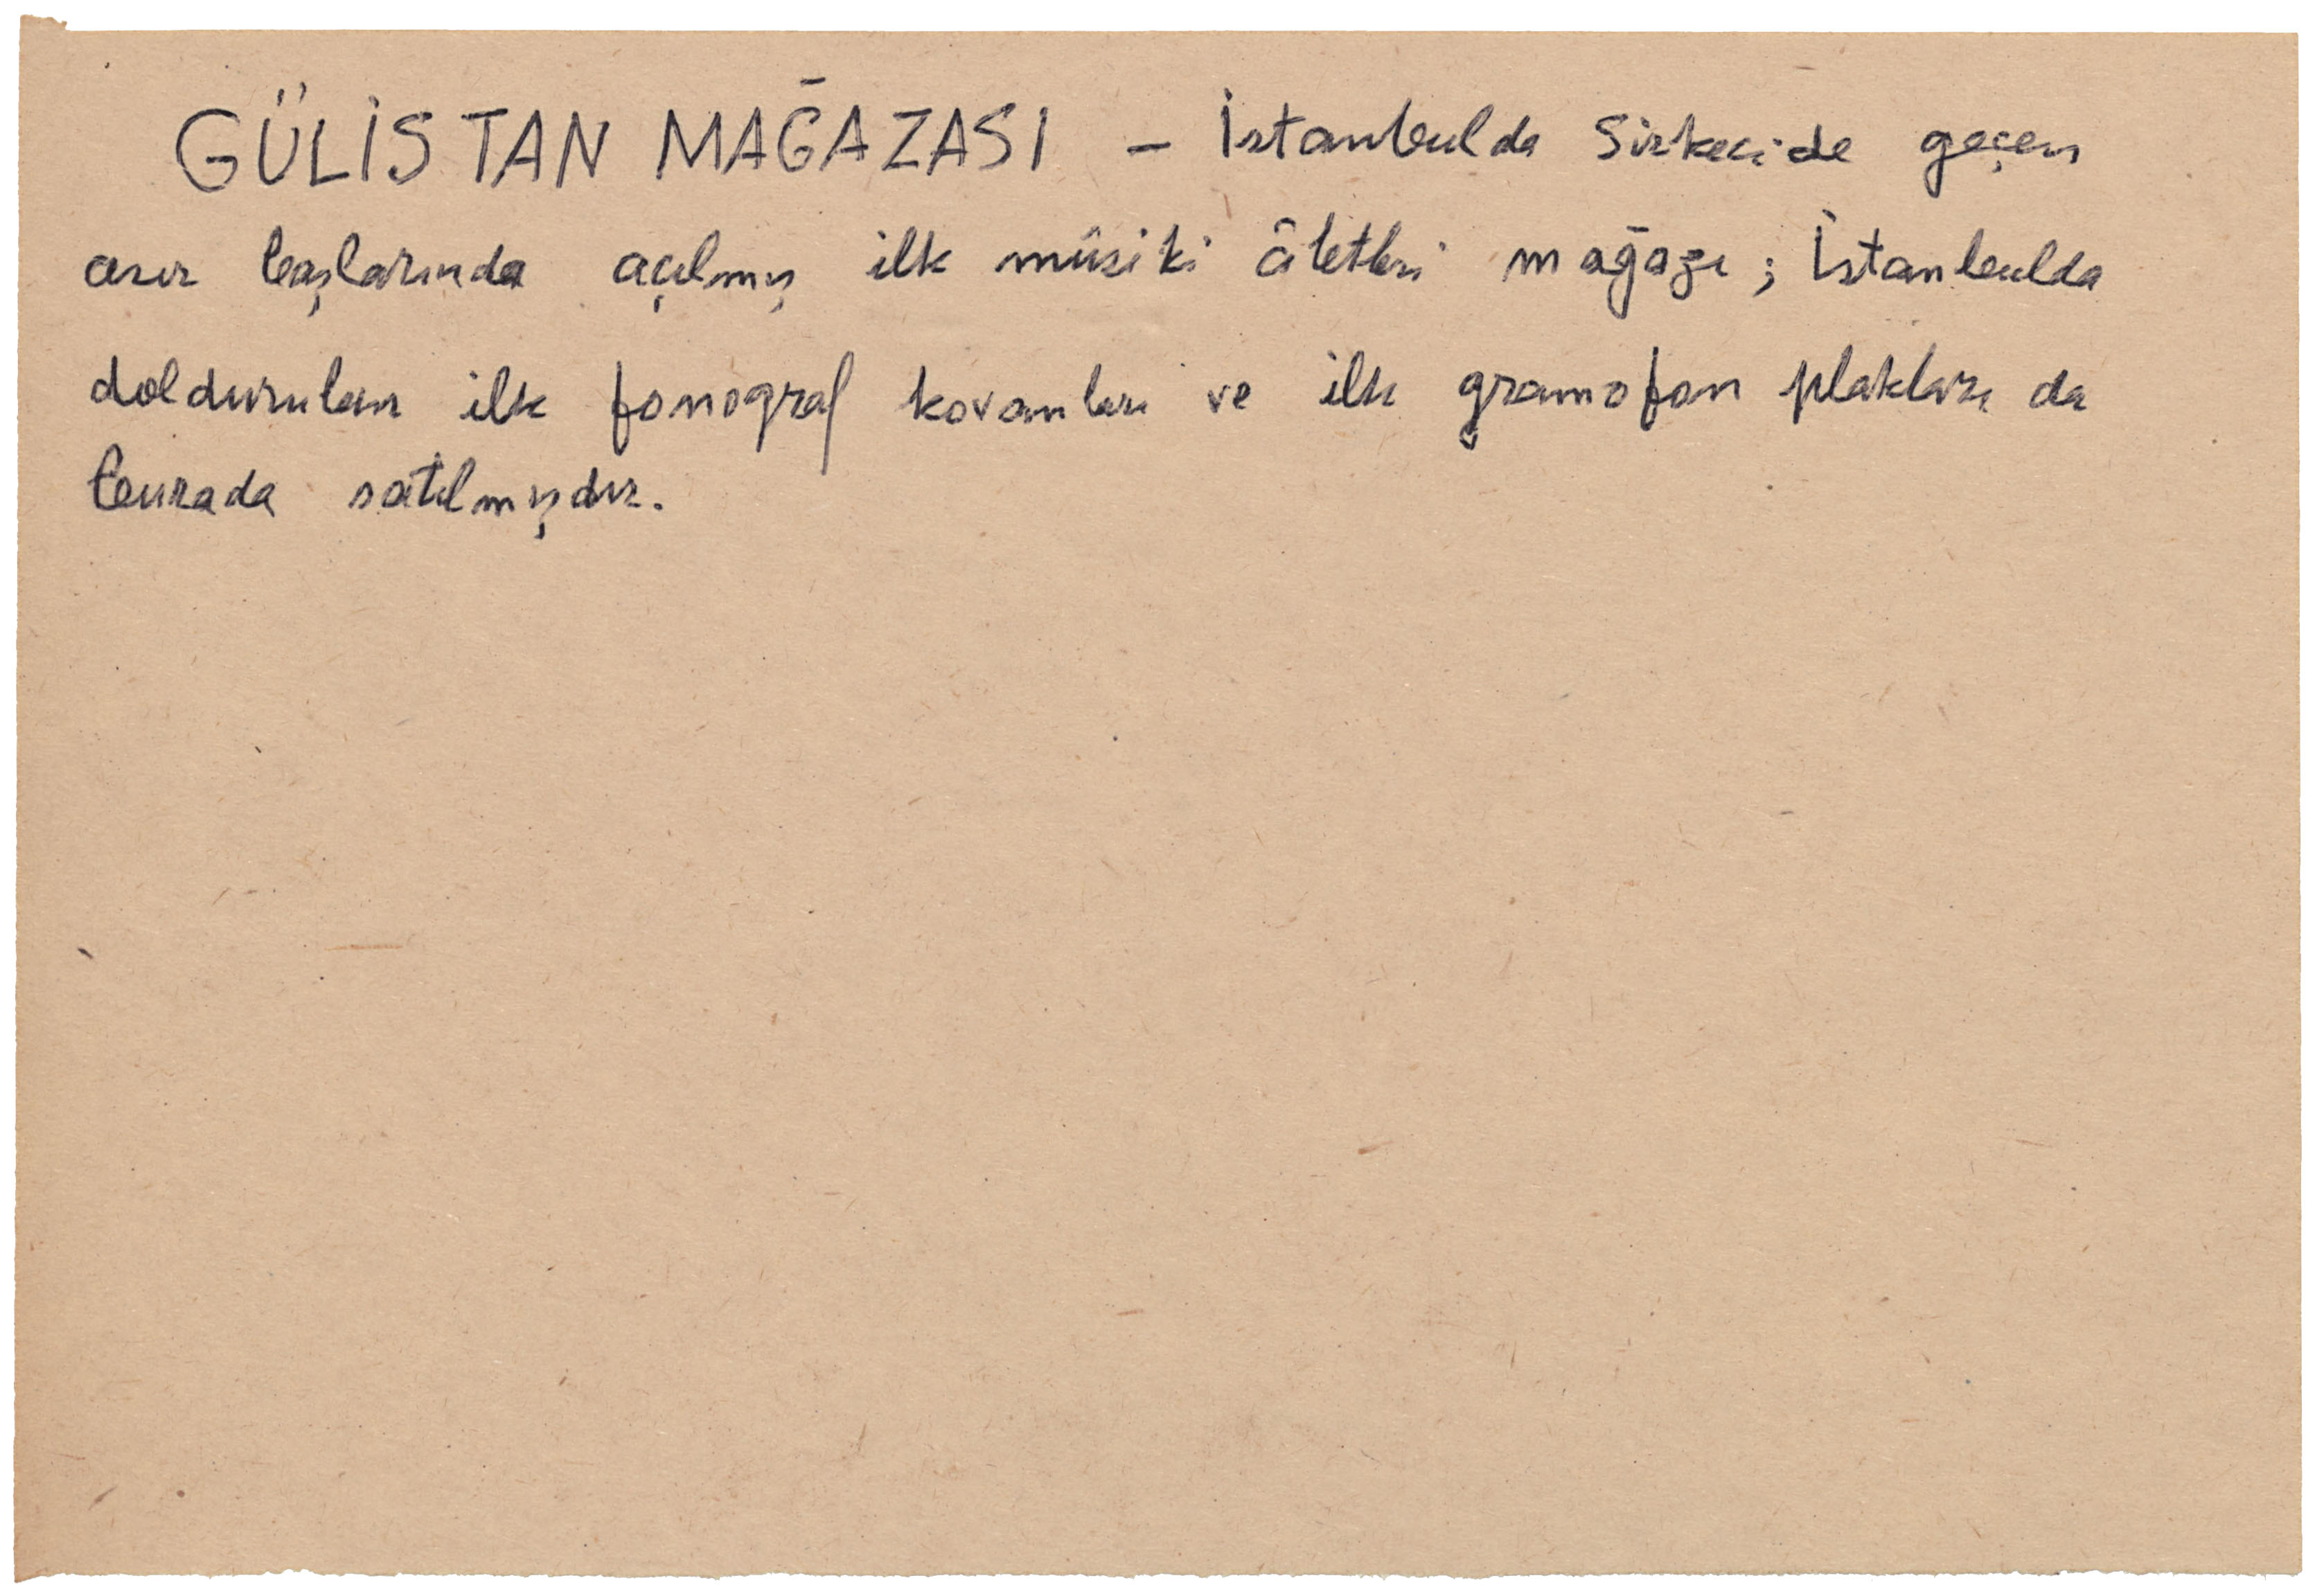 GÜLİSTAN MAĞAZASI – İstanbulda Sirkecide geçen
asır başlarında açılmış ilk mûsiki âletleri mağaza; İstanbulda
doldurulan ilk fonograf kovanları ve ilk gramofon plakları da
burada satılmışdır.